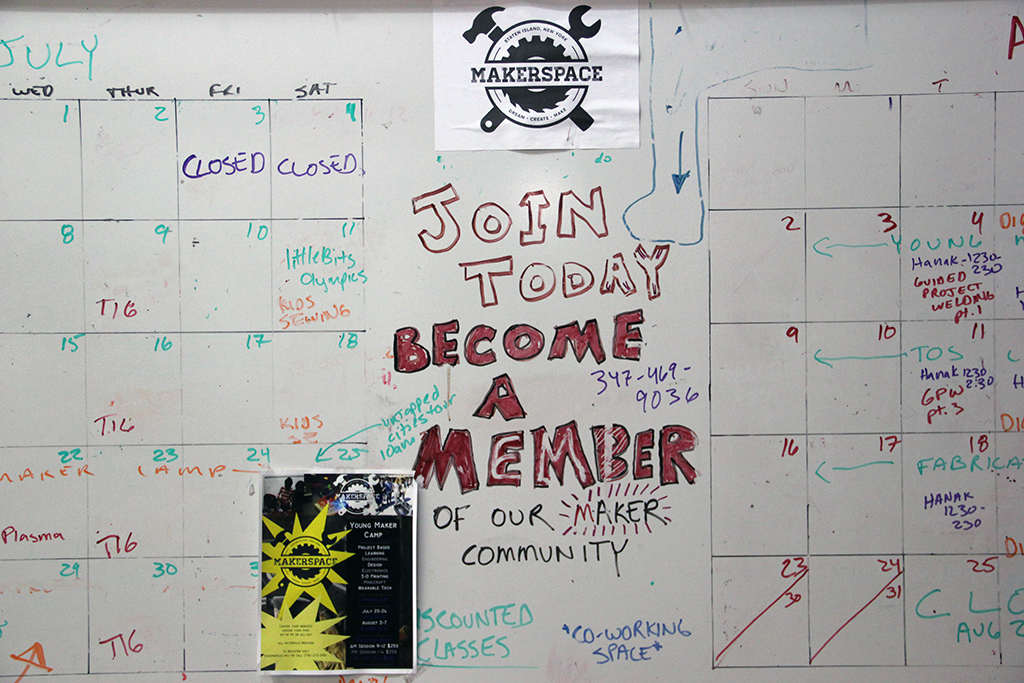 JULY
WED THUR FRI SAT
1 2 3 4
CLOSED CLOSED
8 9 10 11
littleBits
Olympics
KIDS
SEWING
TIG
15 16 17 18
TIG KIDS
22 23 24 25
MAKER CAMP
untapped
cities tour
10am
Plasma TIG
29 30
TIG
STATEN ISLAND, NEW YORK
MAKERSPACE
DREAM • CREATE • MAKE
do
JOIN
TODAY
BECOME
A
MEMBER
OF OUR MAKER
COMMUNITY
347-469-
9036
SCOUNTED
CLASSES
*CO-WORKING
SPACE*
MAKERSPACE
YOUNG MAKER
CAMP
PROJECT BASED
LEARNING
ENGINEERING
DESIGN
ELECTRONICS
3-D PRINTING
MINECRAFT
WEARABLE TECH
JULY 20-24
AUGUST 3-7
AM SESSION 9-12 $250
PM SESSION 1-4 $250
MAKERSPACE
ALL MATERIALS PROVIDED
A
SUN M T
1
2 3 4
YOUNG
Hanak-1230-
230
GUIDED
PROJECT
WELDING
pt. 1
9 10 11
TOS
Hanak 1230
2:30
GPW
pt. 3
16 17 18
FABRICA
HANAK
1230-
230
23 24 25
30 31
CLO
AUG